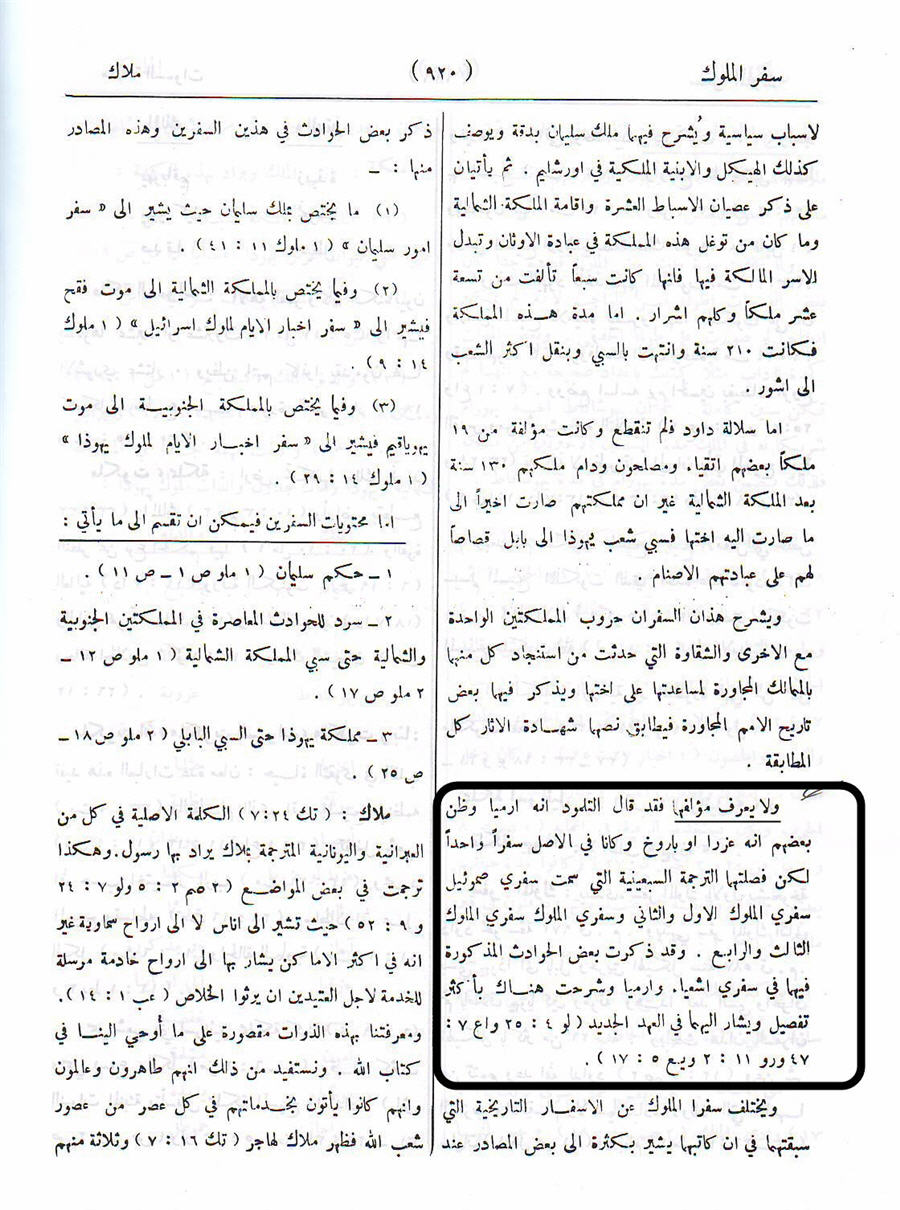 سفر الملوك
( ٩٢٠ )
ملاك
لاسباب سياسية ويُشرح فيهما ملك سليمان بدقة ويوصف
كذلك الهيكل والابنية الملكية في اورشليم . ثم يأتيان
على ذكر عصيان الاسباط العشرة واقامة المملكة الشمالية
وما كان من توغل هذه المملكة في عبادة الاوثان وتبدل
الاسر المالكة فيها فانها كانت سبعاً تألفت من تسعة
عشر ملكاً وكلهم اشرار . اما مدة هذه المملكة
فكانت ٢١٠ سنة وانتهت بالسبي وبنقل اكثر الشعب
الى اشور .
اما سلالة داود فلم تنقطع وكانت مؤلفة من ١٩
ملكاً بعضهم اتقياء ومصلحون ودام ملكهم ١٣٠ سنة
بعد المملكة الشمالية غير ان مملكتهم صارت اخيراً الى
ما صارت اليه اختها فسبي شعب يهوذا الى بابل قصاصاً
لهم على عبادتهم الاصنام .
ويشرح هذان السفران حروب المملكتين الواحدة
مع الاخرى والشقاوة التي حدثت من استنجاد كل منهما
بالممالك المجاورة لمساعدتها على اختها ويذكر فيهما بعض
تاريخ الامم المجاورة فيطابق نصهما شهادة الاثار كل
المطابقة .
ولا يعرف مؤلفهما فقد قال التلمود انه ارميا وظن
بعضهم انه عزرا او باروخ وكانا في الاصل سفراً واحداً
لكن فصلتهما الترجمة السبعينية التي سمت سفري صموئيل
سفري الملوك الاول والثاني وسفري الملوك سفري الملوك
الثالث والرابع . وقد ذكرت بعض الحوادث المذكورة
فيهما في سفري اشعياء وارميا وشرحت هناك بأكثر
تفصيل ويشار اليهما في العهد الجديد ( لو ٤ : ٢٥ واع ٧ :
٤٧ ورو ١١ : ٢ ويع ٥ : ١٧ ) .
ويختلف سفرا الملوك عن الاسفار التاريخية التي
سبقتهما في ان كاتبهما يشير بكثرة الى بعض المصادر عند
ذكر بعض الحوادث في هذين السفرين وهذه المصادر
منها : ـ
(١) ما يختص بملك سليمان حيث يشير الى « سفر
امور سليمان » ( ١ ملوك ١١ : ٤١ ) .
(٢) وفيما يختص بالمملكة الشمالية الى موت فقح
فيشير الى « سفر اخبار الايام لملوك اسرائيل » ( ١ ملوك
١٤ : ٩ ) .
(٣) وفيما يختص بالمملكة الجنوبية الى موت
يهوياقيم فيشير الى « سفر اخبار الايام لملوك يهوذا »
( ١ ملوك ١٤ : ٢٩ ) .
اما محتويات السفرين فيمكن ان تقسم الى ما يأتي :
١ ـ حكم سليمان ( ١ ملو ص ١ ـ ص ١١ ) .
٢ ـ سرد للحوادث المعاصرة في المملكتين الجنوبية
والشمالية حتى سبي المملكة الشمالية ( ١ ملو ص ١٢ ـ
٢ ملو ص ١٧ ) .
٣ ـ مملكة يهوذا حتى السبي البابلي ( ٢ ملو ص ١٨ ـ
ص ٢٥ ) .
ملاك : ( تك ٢٤ : ٧ ) الكلمة الاصلية في كل من
العبرانية واليونانية المترجمة بملاك يراد بها رسول . وهكذا
ترجمت في بعض المواضع ( ٢ صم ٢ : ٥ ولو ٧ : ٢٤
و ٩ : ٥٢ ) حيث تشير الى اناس لا الى ارواح سماوية غير
انه في اكثر الاماكن يشار بها الى ارواح خادمة مرسلة
للخدمة لاجل العتيدين ان يرثوا الخلاص ( عب ١ : ١٤ ) .
ومعرفتنا بهذه الذوات مقصورة على ما أُوحي الينا في
كتاب الله . ونستفيد من ذلك انهم طاهرون وعالمون
وانهم كانوا يأتون بخدماتهم في كل عصر من عصور
شعب الله فظهر ملاك لهاجر ( تك ١٦ : ٧ ) وثلاثة منهم